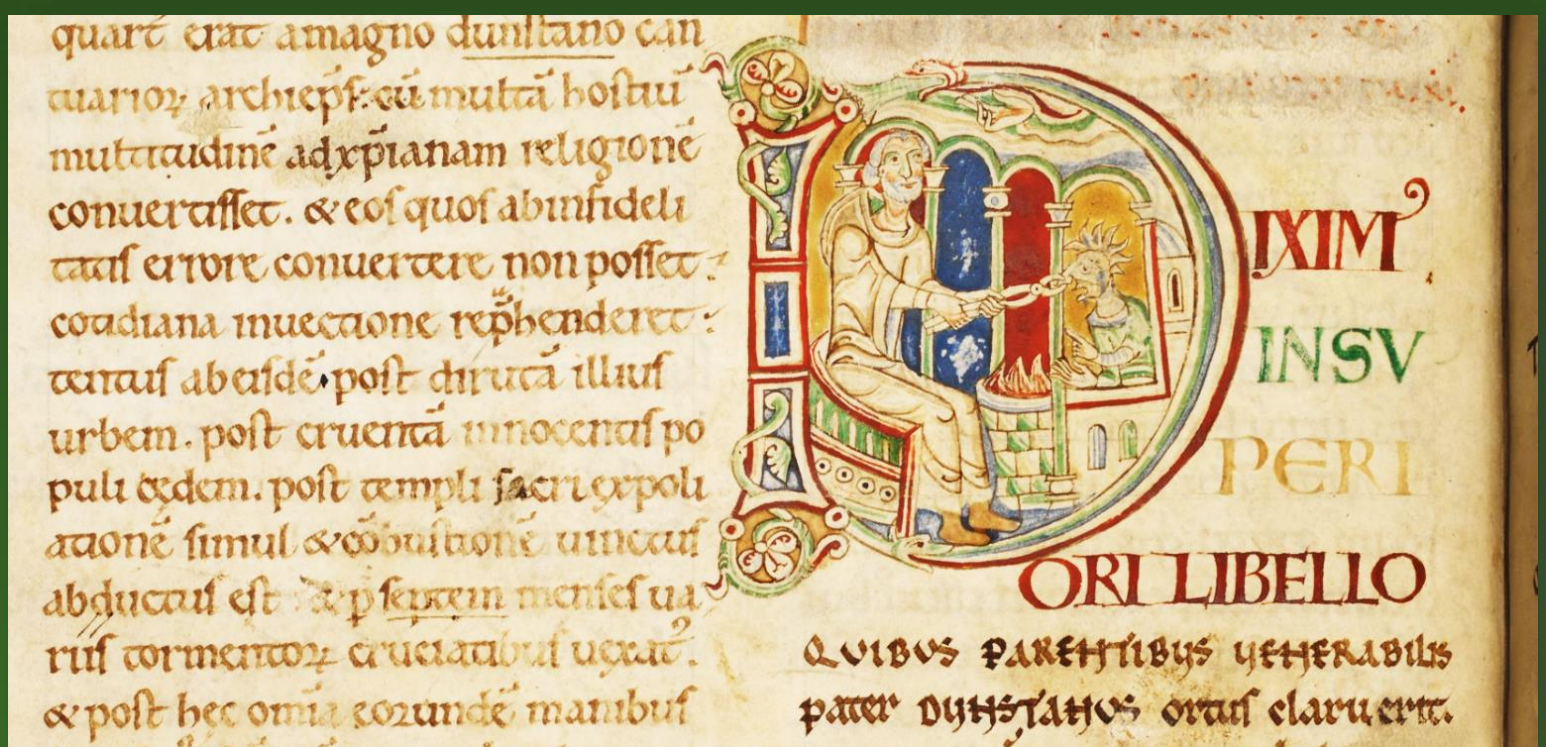 quarẽ erat a magno dunstano can
tuarioꝝ archiep̃s. cũ multã hostiũ
multitudinẽ ad xp̃ianam religionẽ
conuertisset. & eos quos ab infideli
tatis errore conuertere non posset:
cotidiana inuectione rep̃henderet:
tentus ab eisdẽ. post dirutã illius
urbem. post cruentã innocentis po
puli cędem. post templi sacri expoli
ationẽ simul & cõbustionẽ uinctus
abductus est & ꝑ septem menses ua
riis tormentoꝝ cruciatibus uexatꝰ.
& post hec omia eorundẽ manibus
D
IXIMꝰ
IN SV
PERI
ORI LIBELLO
QVIBVS PARENTIBVS VENERABILIS
pater DVNSTANVS ortus claruerit.